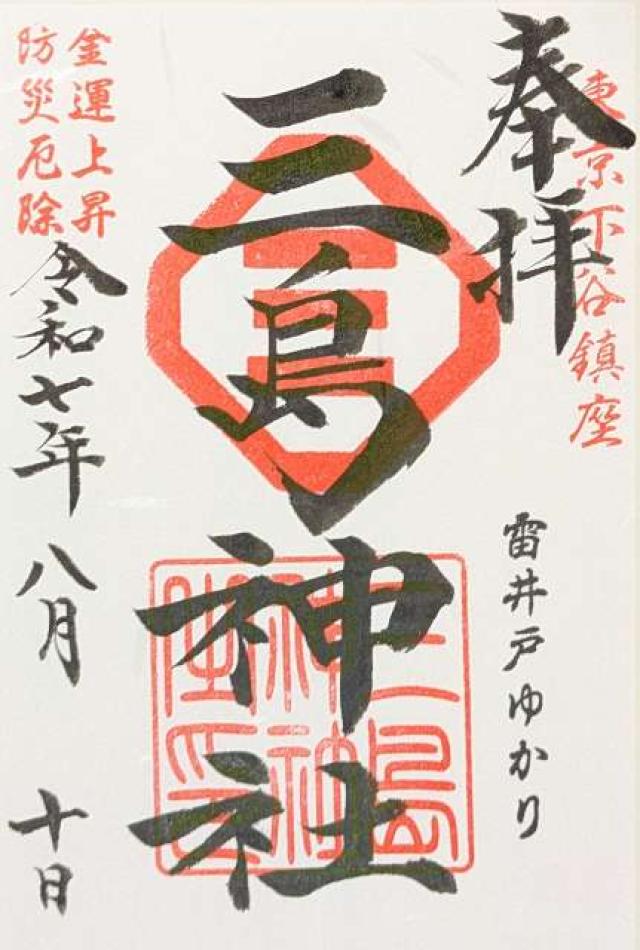 奉拝
東京下谷鎮座
雷井戸ゆかり
三島神社
三島神社神璽之印
金運上昇
防災厄除
令和七年八月十日